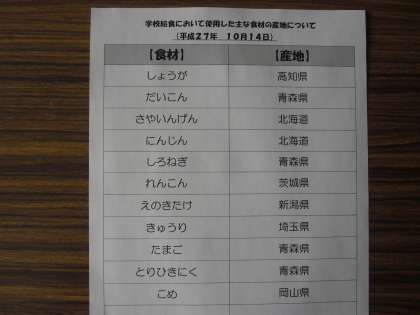 学校給食において使用した主な食材の産地について
(平成27年 10月14日)
【食材】 【産地】
しょうが 高知県
だいこん 青森県
さやいんげん 北海道
にんじん 北海道
しろねぎ 青森県
れんこん 茨城県
えのきたけ 新潟県
きゅうり 埼玉県
たまご 青森県
とりひきにく 青森県
こめ 岡山県